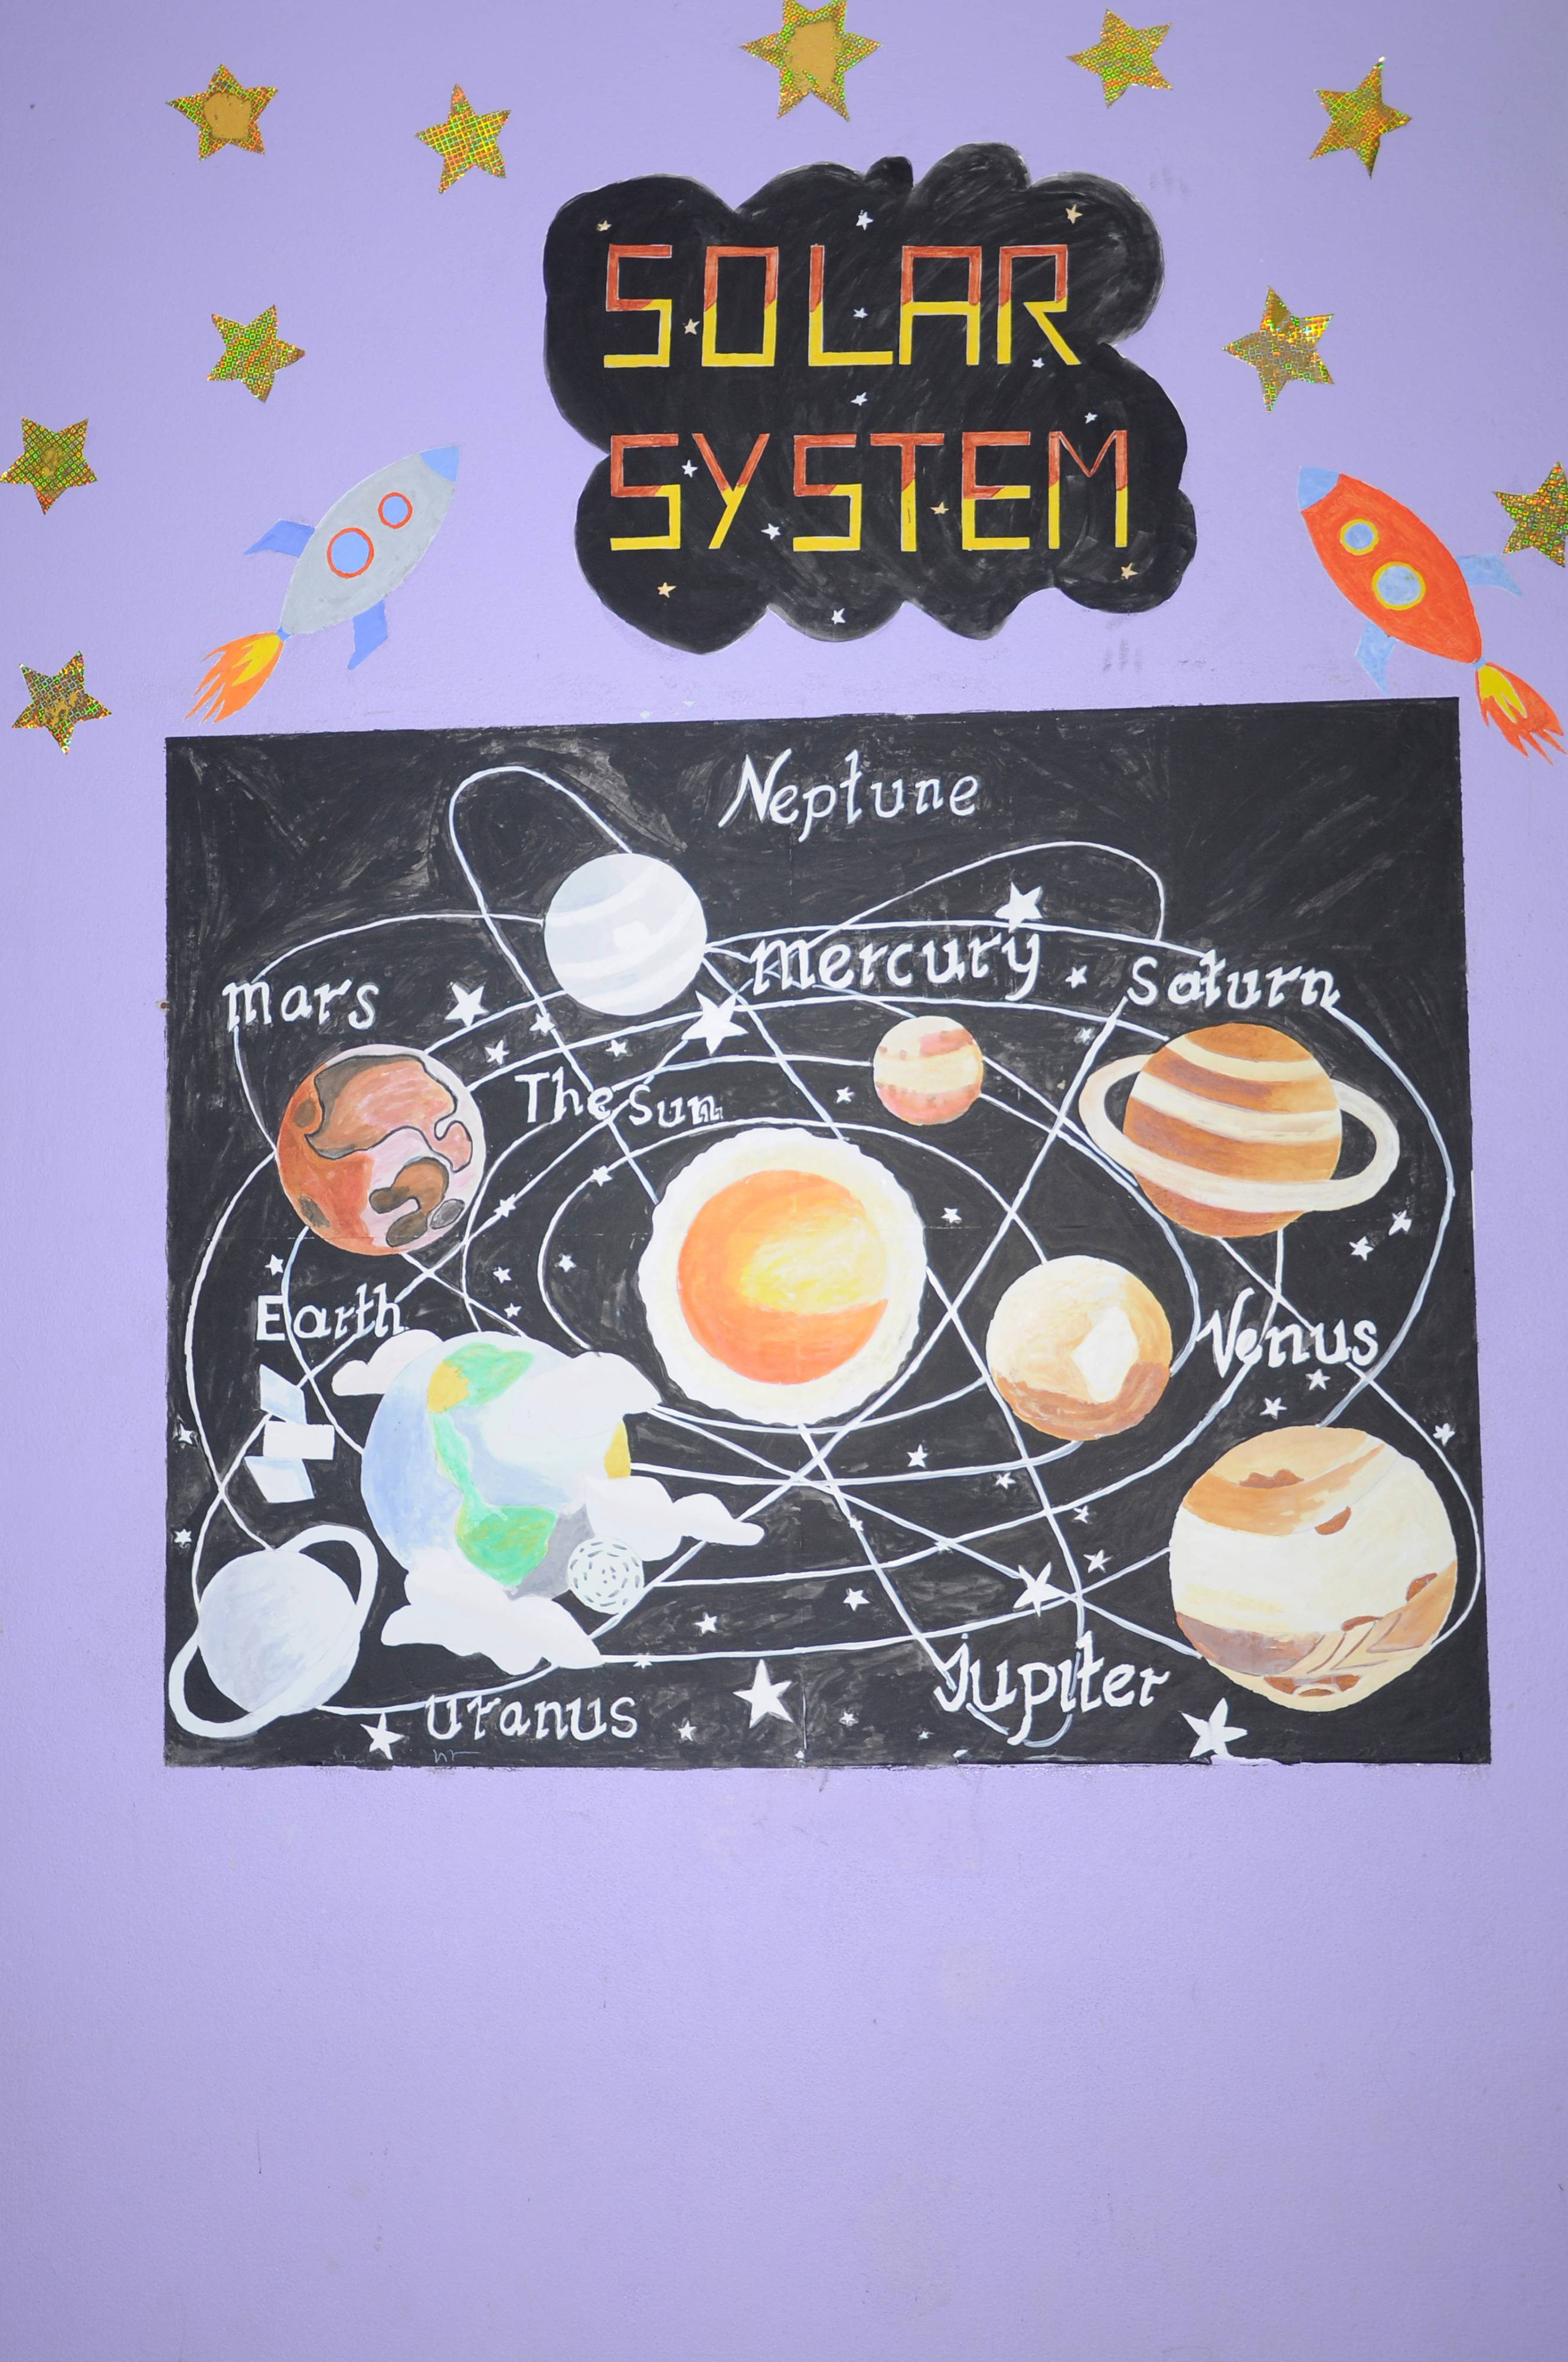 SOLAR
SYSTEM
Neptune
Mercury
Saturn
Mars
The Sun
Earth
Venus
Jupiter
Uranus